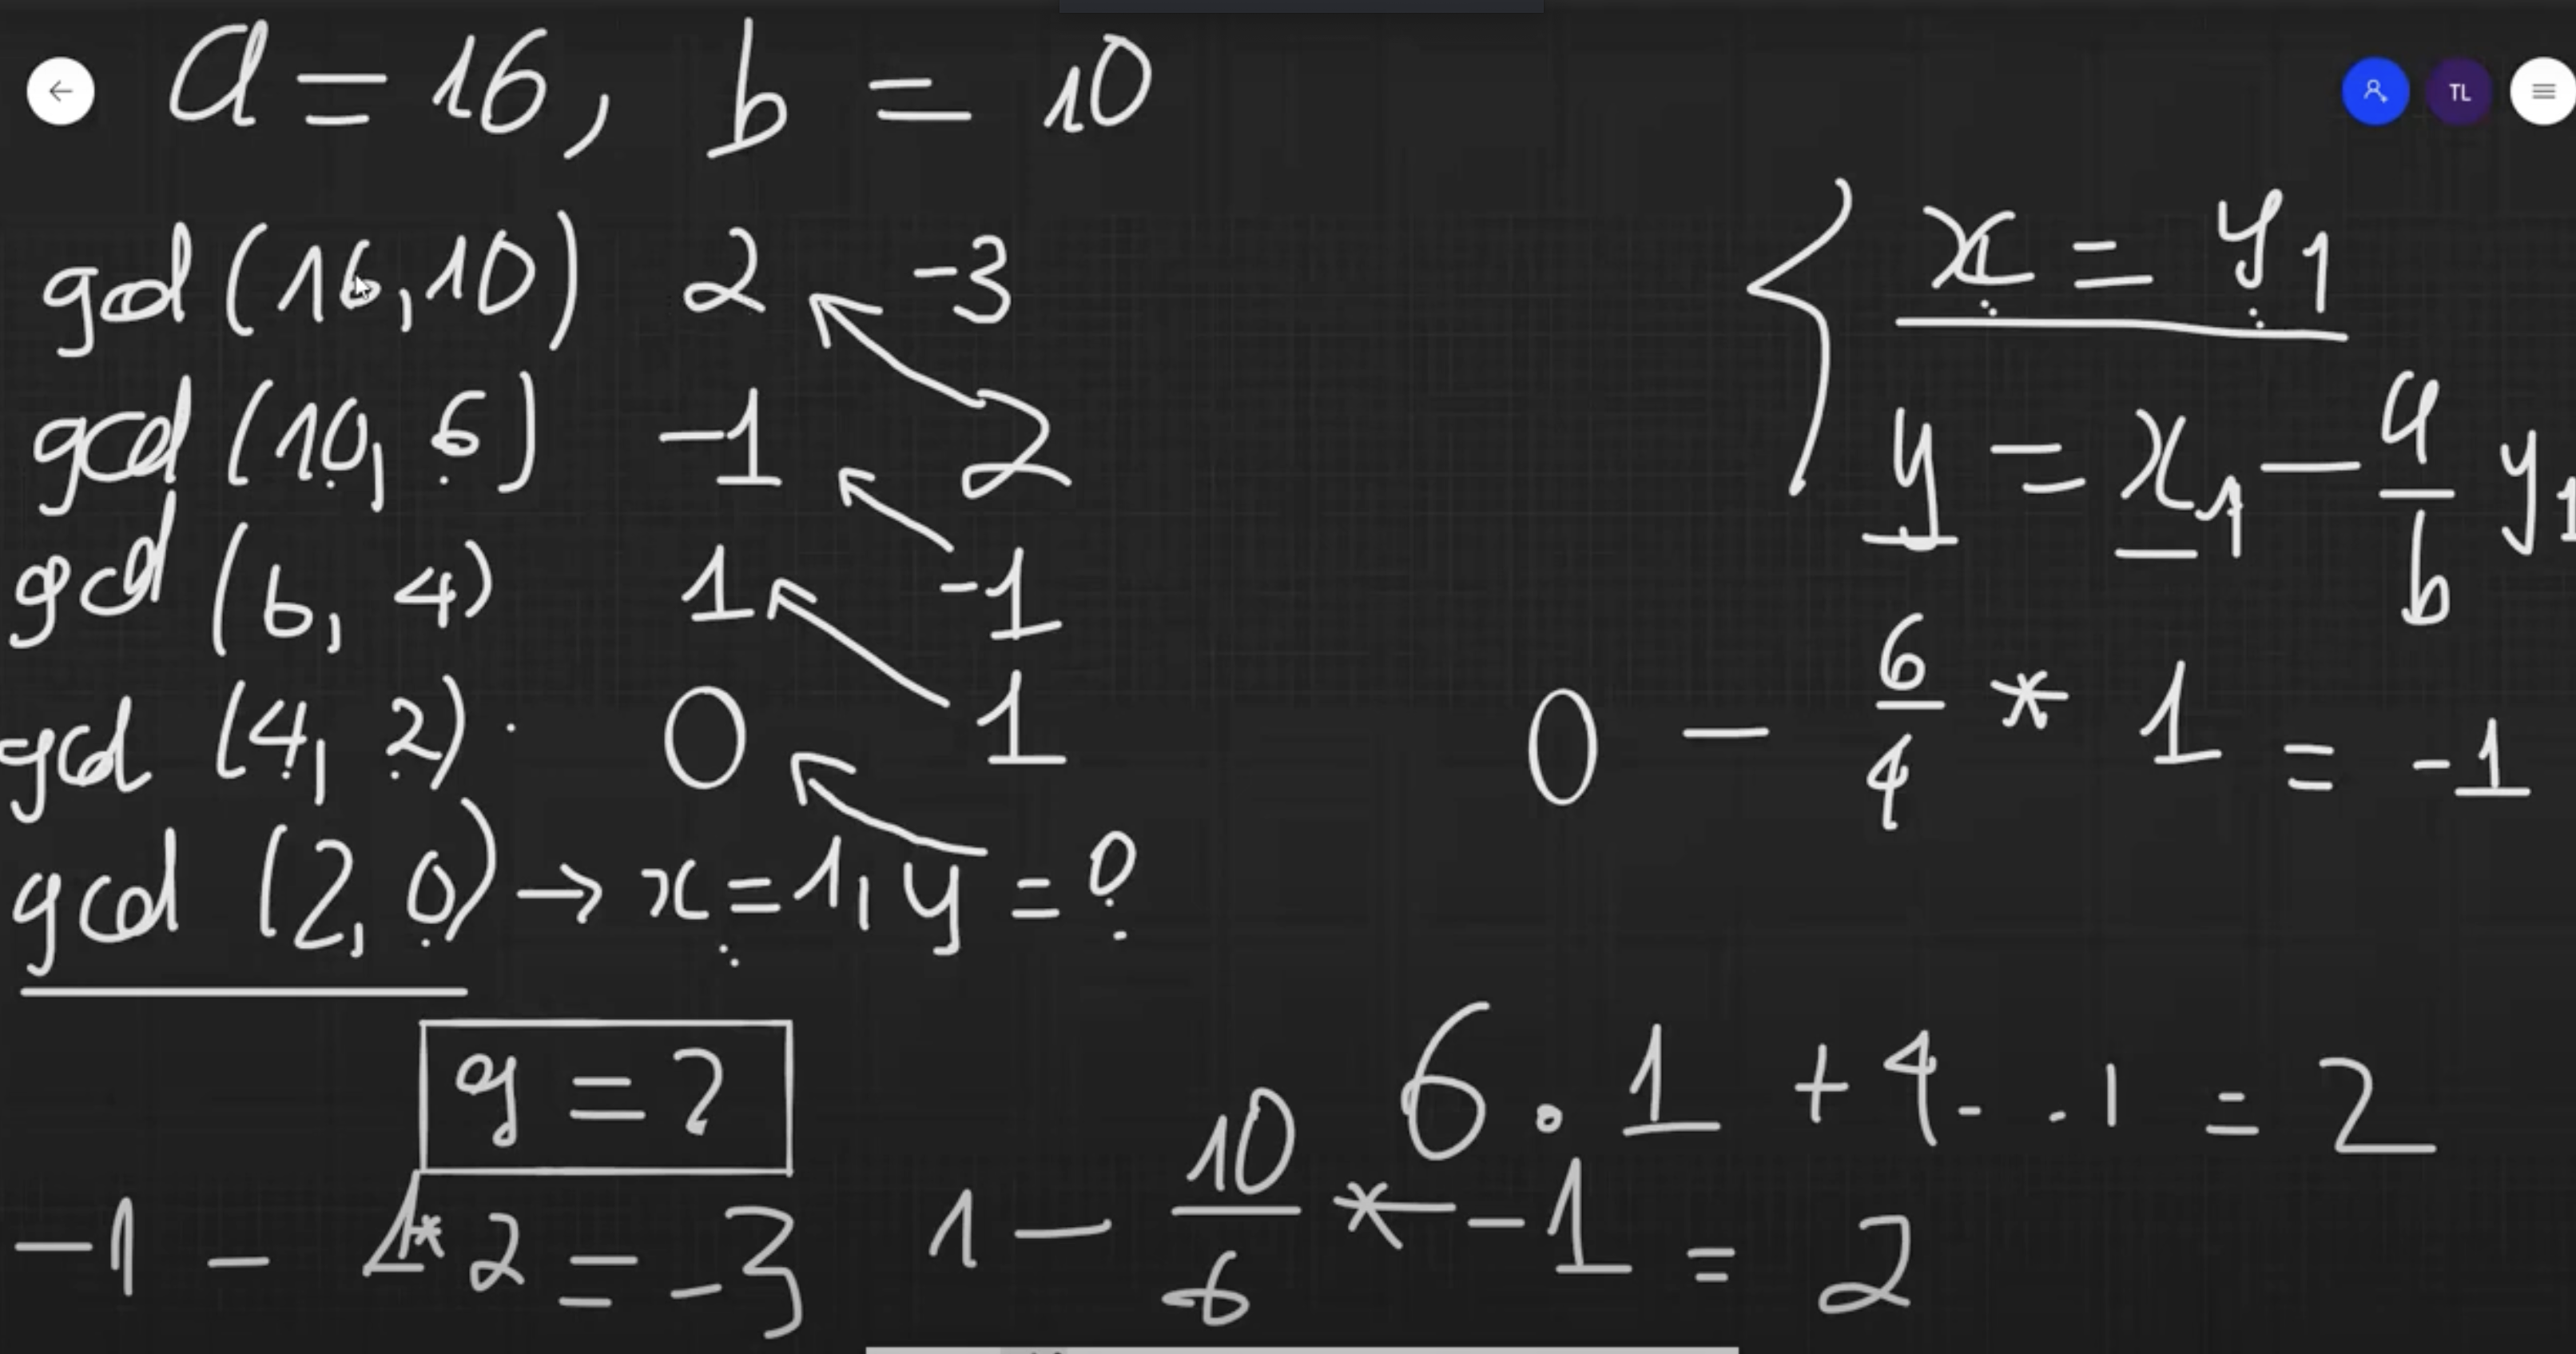 a = 16, b = 10
TL
gcd (16,10) 2 -3
gcd (10, 6) -1 2
gcd (6, 4) 1 -1
gcd (4, 2) 0 1
gcd (2, 0) → x = 1, y = 0
x = y1
y = x1 - a/b y1
0 - 6/4 * 1 = -1
g = 2
6 . 1 + 4 - . 1 = 2
-1 - 1 * 2 = -3
1 - 10/6 * -1 = 2